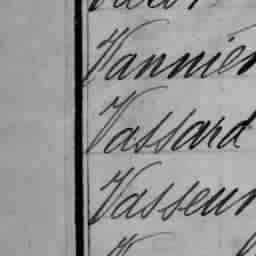 Vannier
Vassard
Vasseur